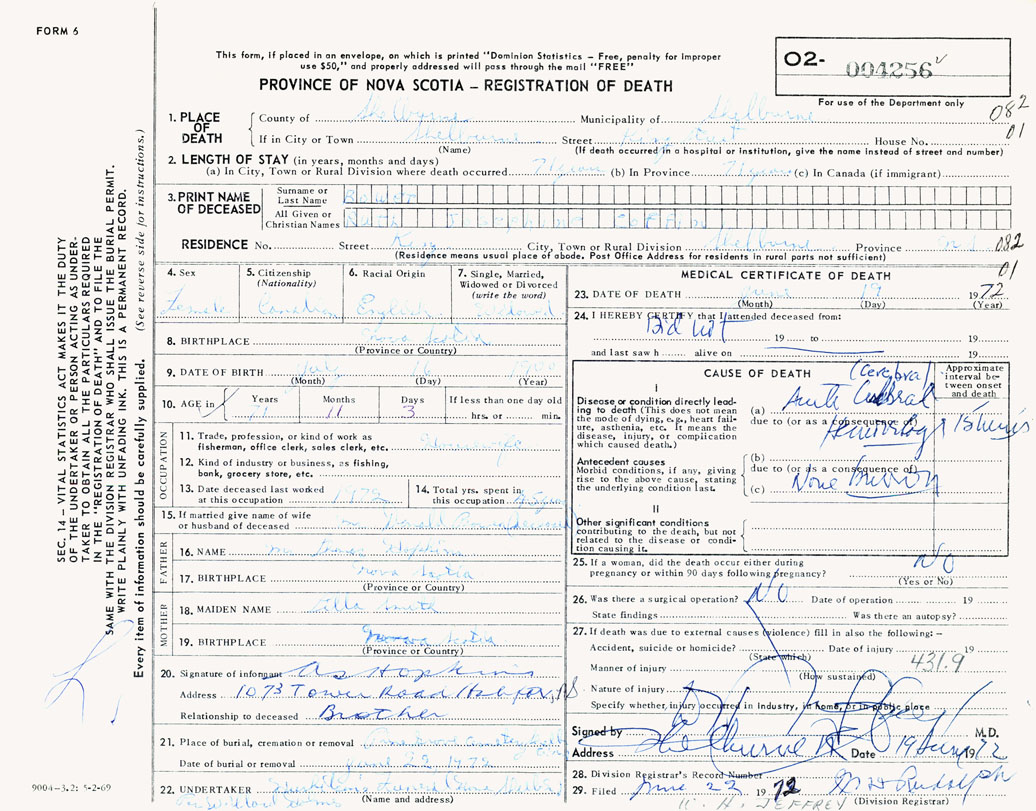 FORM 6
This form, if placed in an envelope, on which is printed "Dominion Statistics – Free, penalty for Improper
use $50," and properly addressed will pass through the mail "FREE"
O2- 004256
For use of the Department only
PROVINCE OF NOVA SCOTIA – REGISTRATION OF DEATH
082
01
1. PLACE OF DEATH
County of Shelburne Municipality of Shelburne
If in City or Town Shelburne Street King Street House No.
(Name) (If death occurred in a hospital or institution, give the name instead of street and number)
2. LENGTH OF STAY (in years, months and days)
(a) In City, Town or Rural Division where death occurred 71 years (b) In Province 71 years (c) In Canada (if immigrant)
3. PRINT NAME OF DECEASED
Surname or Last Name
All Given or Christian Names Ruth Josephine
RESIDENCE No. Street King City, Town or Rural Division Shelburne Province N.S. 082
(Residence means usual place of abode. Post Office Address for residents in rural parts not sufficient)
01
4. Sex Female
5. Citizenship (Nationality) Canadian
6. Racial Origin English
7. Single, Married, Widowed or Divorced (write the word) Widowed
8. BIRTHPLACE Nova Scotia
(Province or Country)
9. DATE OF BIRTH July 16 1900
(Month) (Day) (Year)
10. AGE in Years 71 Months 11 Days 3 If less than one day old hrs. or min.
OCCUPATION
11. Trade, profession, or kind of work as fisherman, office clerk, sales clerk, etc. Housewife
12. Kind of industry or business, as fishing, bank, grocery store, etc.
13. Date deceased last worked at this occupation 1972
14. Total yrs. spent in this occupation
15. If married give name of wife or husband of deceased
FATHER
16. NAME Hopkins
17. BIRTHPLACE Nova Scotia
(Province or Country)
MOTHER
18. MAIDEN NAME Ella Smith
19. BIRTHPLACE Nova Scotia
(Province or Country)
20. Signature of informant Hopkins
Address 1073 Tower Road Halifax, NS
Relationship to deceased Brother
21. Place of burial, cremation or removal
Date of burial or removal June 22 1972
22. UNDERTAKER
(Name and address)
MEDICAL CERTIFICATE OF DEATH
23. DATE OF DEATH June 19 1972
(Month) (Day) (Year)
24. I HEREBY CERTIFY that I attended deceased from:
Did Not 19 to 19
and last saw h alive on 19
CAUSE OF DEATH
Approximate interval between onset and death
I
Disease or condition directly leading to death (This does not mean the mode of dying, e.g., heart failure, asthenia, etc. It means the disease, injury, or complication which caused death.)
(Cerebral
(a) Acute Cerebral
due to (or as a consequence of)
Antecedent causes
Morbid conditions, if any, giving rise to the above cause, stating the underlying condition last.
(b)
due to (or as a consequence of)
(c) None
II
Other significant conditions
contributing to the death, but not related to the disease or condition causing it.
25. If a woman, did the death occur either during pregnancy or within 90 days following pregnancy? NO
(Yes or No)
26. Was there a surgical operation? NO Date of operation 19
State findings Was there an autopsy?
27. If death was due to external causes (violence) fill in also the following: –
Accident, suicide or homicide? Date of injury 19
(State which)
431.9
Manner of injury
(How sustained)
Nature of injury
Specify whether, injury occurred in Industry, in home, or in public place
Signed by M.D.
Address Shelburne NS Date 19 June 1972
28. Division Registrar's Record Number
29. Filed June 22 1972
(Division Registrar)
JEFFREY
SEC. 14 – VITAL STATISTICS ACT MAKES IT THE DUTY
OF THE UNDERTAKER OR PERSON ACTING AS UNDER-
TAKER TO OBTAIN ALL THE PARTICULARS REQUIRED
IN THE "REGISTRATION OF DEATH" AND TO FILE THE
SAME WITH THE DIVISION REGISTRAR WHO SHALL ISSUE THE BURIAL PERMIT.
WRITE PLAINLY WITH UNFADING INK. THIS IS A PERMANENT RECORD.
Every item of information should be carefully supplied. (See reverse side for instructions.)
9004-3.2: 5-2-69